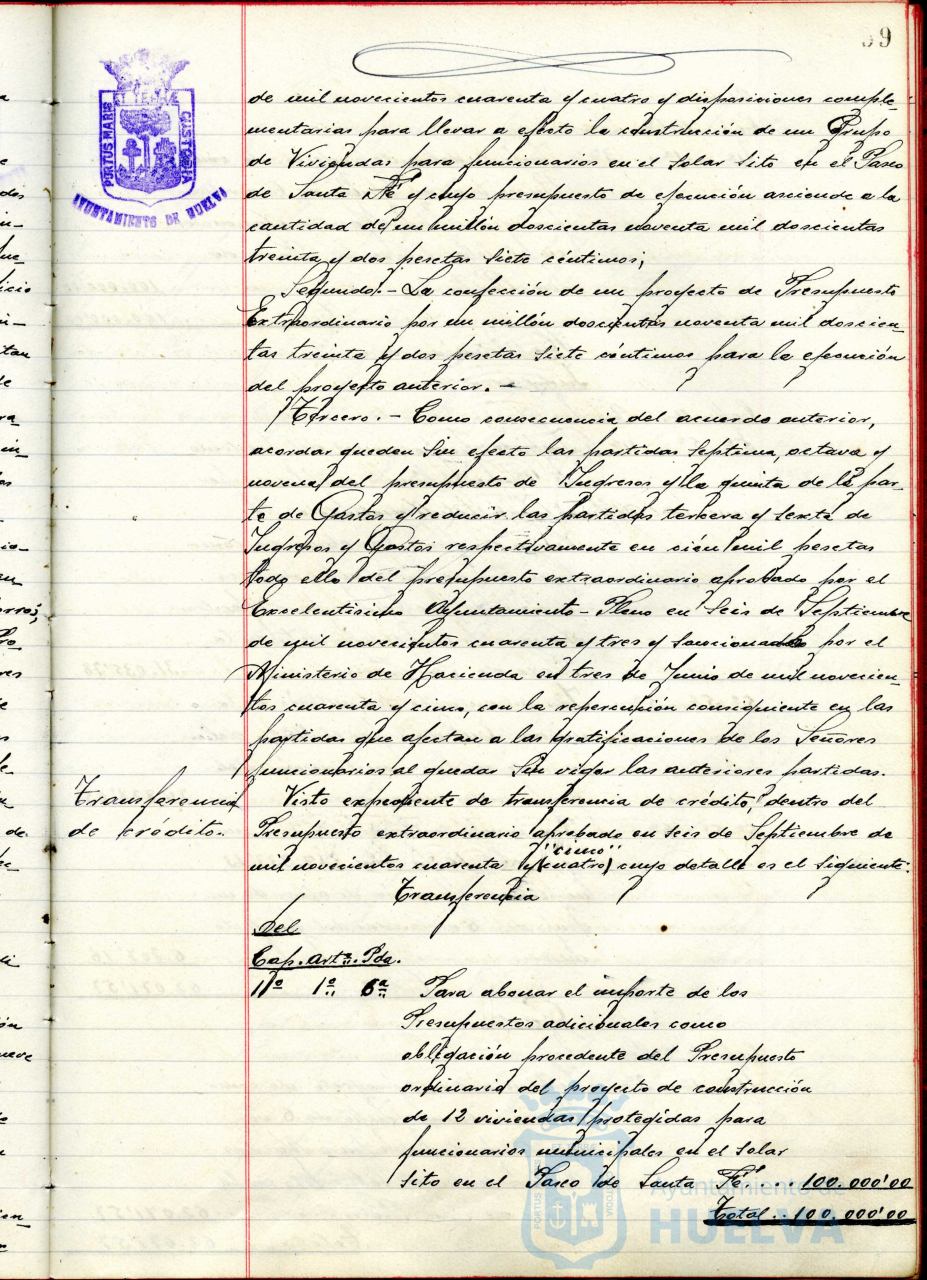 59
PORTUS MARIS ET TERRÆ CUSTODIA
AYUNTAMIENTO DE HUELVA
de mil novecientos cuarenta y cuatro y disposiciones comple-
mentarias para llevar a efecto la construcción de un Grupo
de Viviendas para funcionarios en el solar sito en el Paseo
de Santa Fé y cuyo presupuesto de ejecución asciende a la
cantidad de un millón doscientas noventa mil doscientas
treinta y dos pesetas siete céntimos;
Segundo.- La confección de un proyecto de Presupuesto
Extraordinario por un millón doscientas noventa mil doscien-
tas treinta y dos pesetas siete céntimos para la ejecución
del proyecto anterior.-
Tercero.- Como consecuencia del acuerdo anterior,
acordar queden sin efecto las partidas septima, octava y
novena del presupuesto de Ingresos y la quinta de la par-
te de Gastos y reducir las partidas tercera y sexta de
Ingresos y Gastos respectivamente en cien mil pesetas
todo ello del presupuesto extraordinario aprobado por el
Excelentisimo Ayuntamiento-Pleno en seis de Septiembre
de mil novecientos cuarenta y tres y sancionado por el
Ministerio de Hacienda en tres de Junio de mil novecien-
tos cuarenta y cinco, con la repercusión consiguiente en las
partidas que afectan a las gratificaciones de los Señores
funcionarios al quedar sin vigor las anteriores partidas.
Transferencia
de crédito.
Visto expediente de transferencia de crédito, dentro del
Presupuesto extraordinario aprobado en seis de Septiembre de
"cinco"
mil novecientos cuarenta y (cuatro) cuyo detalle es el siguiente:
Transferencia
Del
Cap. artº. Pda.
11º 1º 6ª Para abonar el importe de los
Presupuestos adicionales como
obligación procedente del Presupuesto
ordinario del proyecto de construcción
de 12 viviendas protegidas para
funcionarios municipales en el solar
sito en el Paseo de Santa Fé. .. 100.000'00
Total .. 100.000'00
Ayuntamiento de
HUELVA